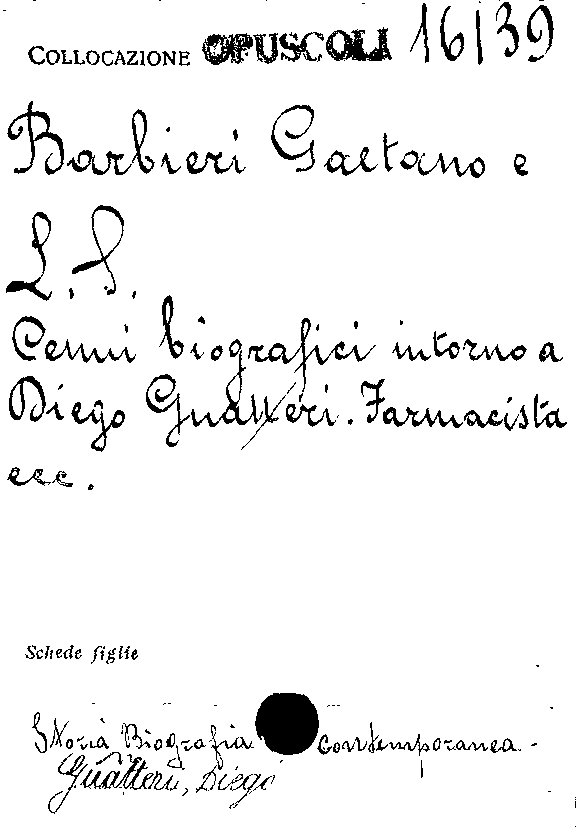 COLLOCAZIONE OPUSCOLI 16/39
Barbieri Gaetano e
L. S.
Cenni biografici intorno a
Diego Gualteri. Farmacista
ecc.
Schede figlie
Storia Biografia contemporanea -
Gualteri, Diego